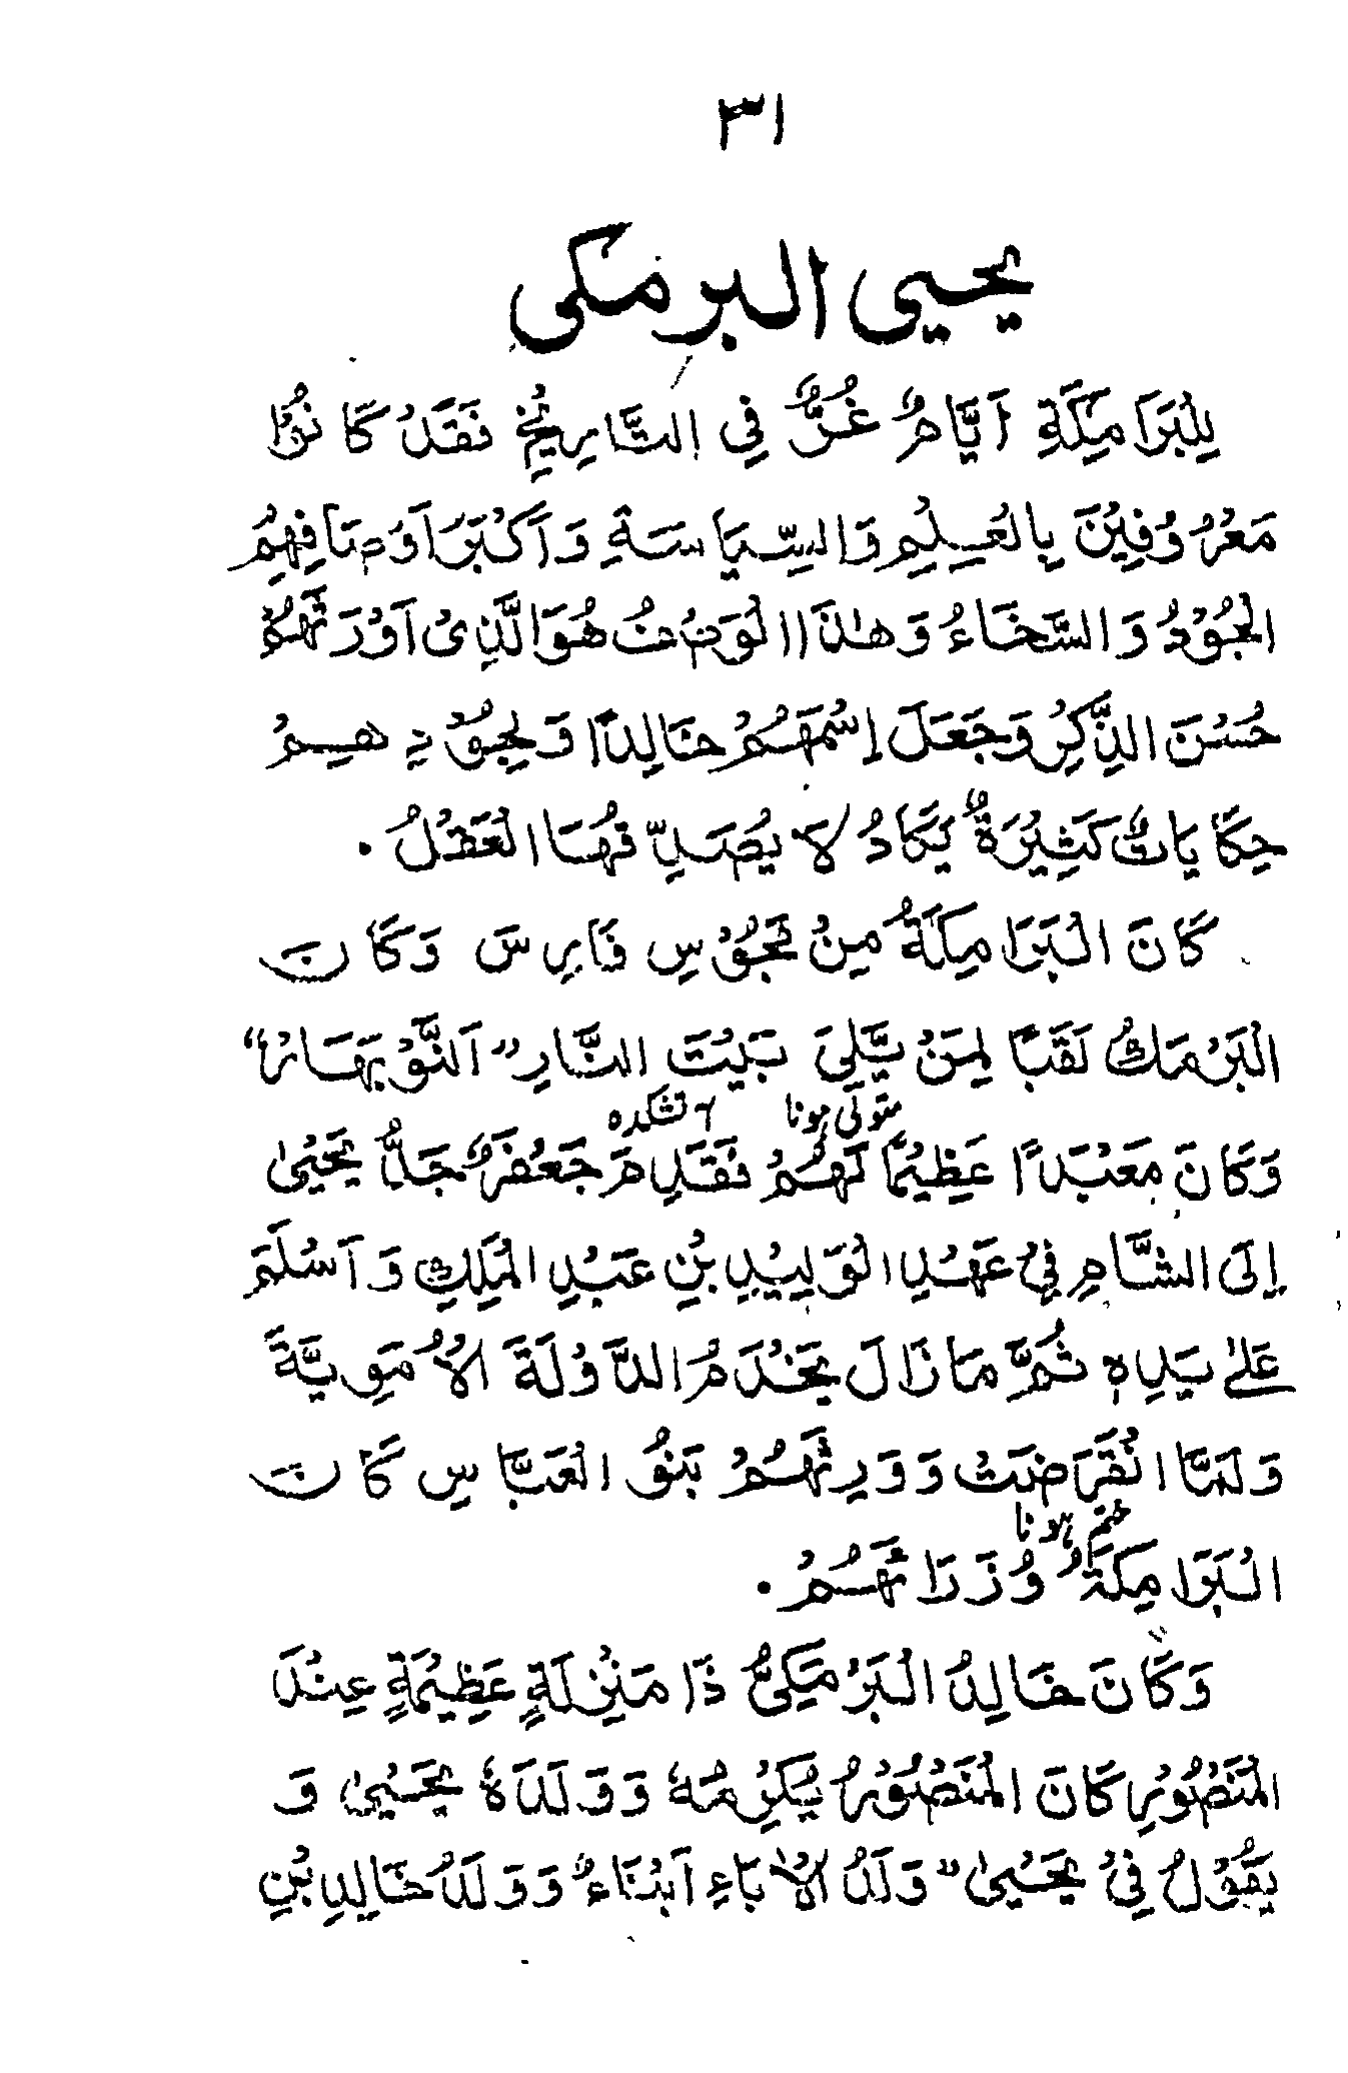 ٣١
يحيى البرمكى
لِلْبَرَامِكَةِ اَيَّامٌ غُرٌّ فِي التَّارِيْخِ فَقَدْ كَانُوْا
مَعْرُوْفِيْنَ بِالْعِلْمِ وَالسِّيَاسَةِ وَاَكْبَرُ اَوْصَافِهِمْ
الْجُوْدُ وَالسَّخَاءُ وَهٰذَا الْوَصْفُ هُوَ الَّذِىْ اَوْرَثَهُمْ
حُسْنَ الذِّكْرِ وَجَعَلَ اِسْمَهُمْ خَالِدًا وَلِجُوْدِهِمْ
حِكَايَاتٌ كَثِيْرَةٌ يَكَادُ لاَ يُصَدِّقُهَا الْعَقْلُ .
كَانَ الْبَرَامِكَةُ مِنْ مَجُوْسِ فَارِسَ وَكَانَ
الْبَرْمَكُ لَقَبًا لِمَنْ يَّلِىَ بَيْتَ النَّارِ "اَلنَّوْبَهَارْ"
متولی ہونا آتشکدہ
وَكَانَ مَعْبَدًا عَظِيْمًا لَهُمْ فَقَدِمَ جَعْفَرٌ جَدُّ يَحْيٰى
اِلَى الشَّامِ فِىْ عَهْدِ الْوَلِيْدِ بْنِ عَبْدِ الْمَلِكِ وَاَسْلَمَ
عَلٰى يَدِهٖ ثُمَّ مَا زَالَ يَخْدَمُ الدَّوْلَةَ الْاُمَوِيَّةَ
وَلَمَّا انْقَرَضَتْ وَوَرِثَهُمْ بَنُوْ الْعَبَّاسِ كَانَ
ختم ہونا
الْبَرَامِكَةُ وُزَرَاءَهُمْ .
وَكَانَ خَالِدُ الْبَرْمَكِىُّ ذَا مَنْزِلَةٍ عَظِيْمَةٍ عِنْدَ
الْمَنْصُوْرِ كَانَ الْمَنْصُوْرُ يُكْرِمُهٗ وَوَلَدَهٗ يَحْيٰى وَ
يَقُوْلُ فِىْ يَحْيٰى "وَلَدُ الْاٰبَاءِ اَبْنَاءٌ وَوَلَدُ خَالِدِ بْنِ